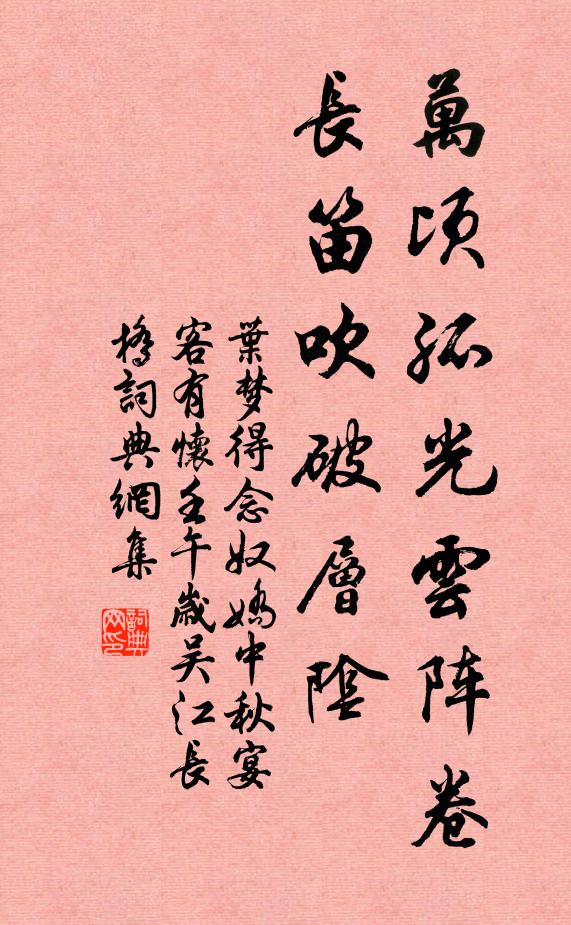 萬頃孤光雲阵卷
長笛吹破層陰
葉梦得念奴嬌中秋宴
客有懷壬午歲吴江長
橋詞典網集
詞典
网印